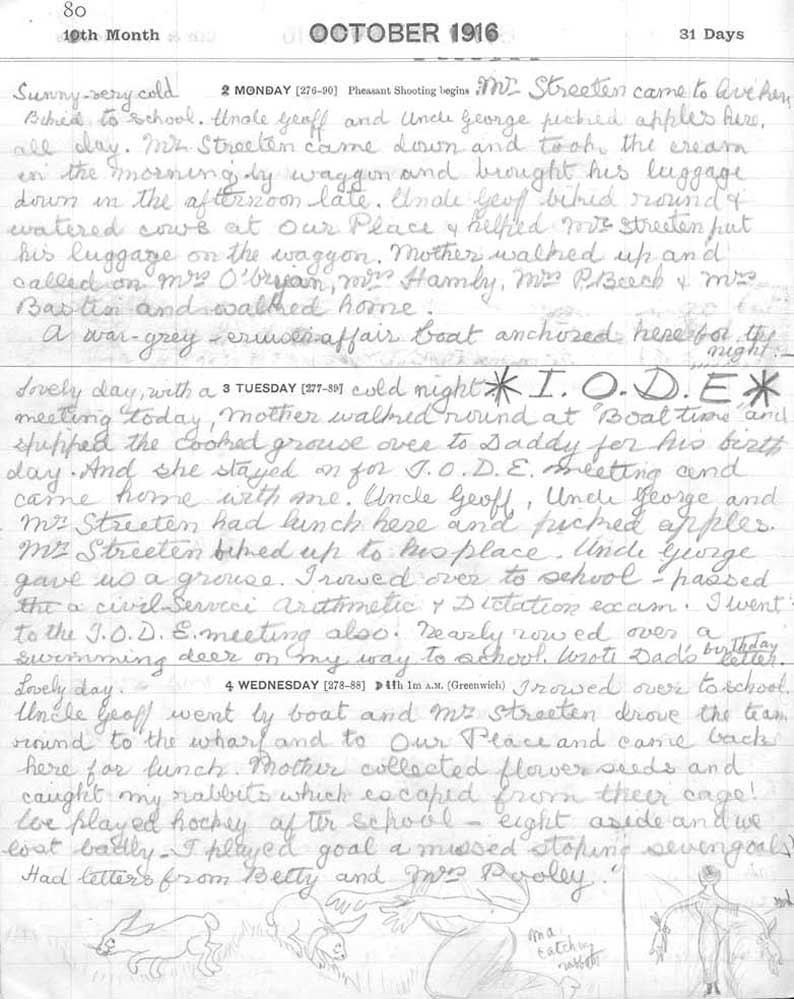 80
10th Month OCTOBER 1916 31 Days
Sunny-very cold 2 MONDAY [276-90] Pheasant Shooting begins Mr. Streeten came to live here
Biked to school. Uncle Geoff and Uncle George picked apples here,
all day. Mr. Streeten came down and took the cream
in the morning by waggon and brought his luggage
down in the afternoon late. Uncle Geof biked round &
watered cows at Our Place & helped Mr. Streeten put
his luggage on the waggon. Mother walked up and
called on Mrs O'bryan, Mrs Hamby, Mrs P. Beech & Mrs
Bastin and walked home.
A war-grey - cruiser affair boat anchored here for the
night. -
Lovely day, with a 3 TUESDAY [277-89] cold night * I. O. D. E *
meeting today, Mother walked round at "Boat time" and
shipped the cooked grouse over to Daddy for his birth
day. And she stayed on for I.O.D.E. meeting and
came home with me. Uncle Geoff, Uncle George and
Mr. Streeten had lunch here and picked apples.
Mr. Streeten biked up to his place. Uncle George
gave us a grouse. I rowed over to school - passed
a civil-Servici Arithmetic & Dictation exam. I went
to the I.O.D.E. meeting also. Nearly rowed over a
swimming deer on my way to school. Wrote Dad's birthday
letter.
Lovely day. 4 WEDNESDAY [278-88] 11h 1m A.M. (Greenwich) I rowed over to school.
Uncle Geoff went by boat and Mr Streeten drove the team
round to the wharf and to Our Place and came back
here for lunch. Mother collected flower seeds and
caught my rabbits which escaped from their cage!
We played hockey after school - eight aside and we
lost badly - I played goal a missed stoping seven goals
Had letters from Betty and Mrs Pooley."
ma
catching
rabbit